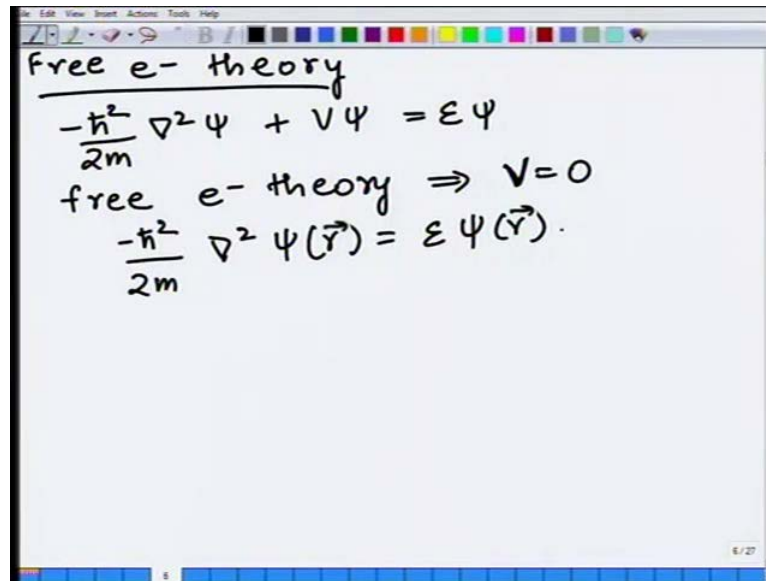 File Edit View Insert Actions Tools Help
Free e- theory
-ħ²/2m ∇²ψ + Vψ = εψ
free e- theory ⇒ V=0
-ħ²/2m ∇² ψ(r⃗) = ε ψ(r⃗).
6/27
6